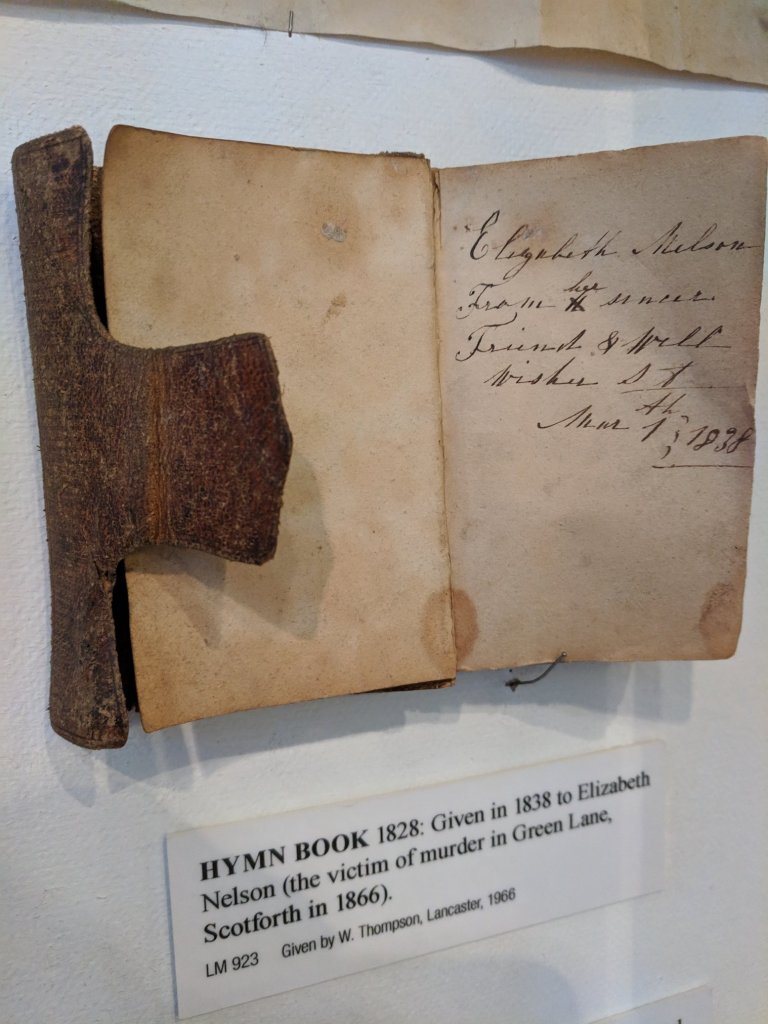 Elizabeth Nelson
From her sincer
Friend & Well
Wisher S T
Mar 1th; 1838
HYMN BOOK 1828: Given in 1838 to Elizabeth
Nelson (the victim of murder in Green Lane,
Scotforth in 1866).
LM 923 Given by W. Thompson, Lancaster, 1966